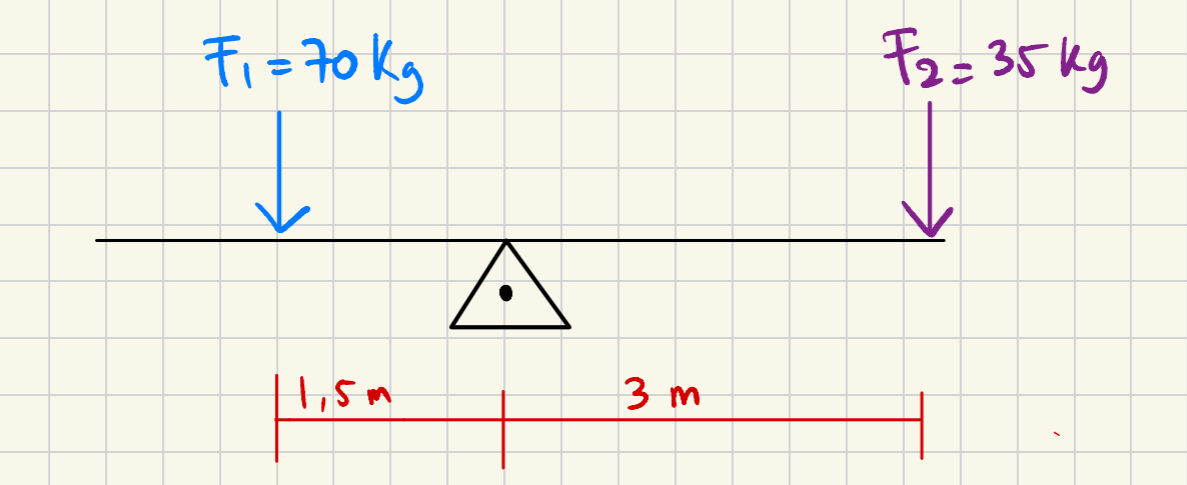 F₁ = 70 Kg
F₂ = 35 kg
1,5 m
3 m